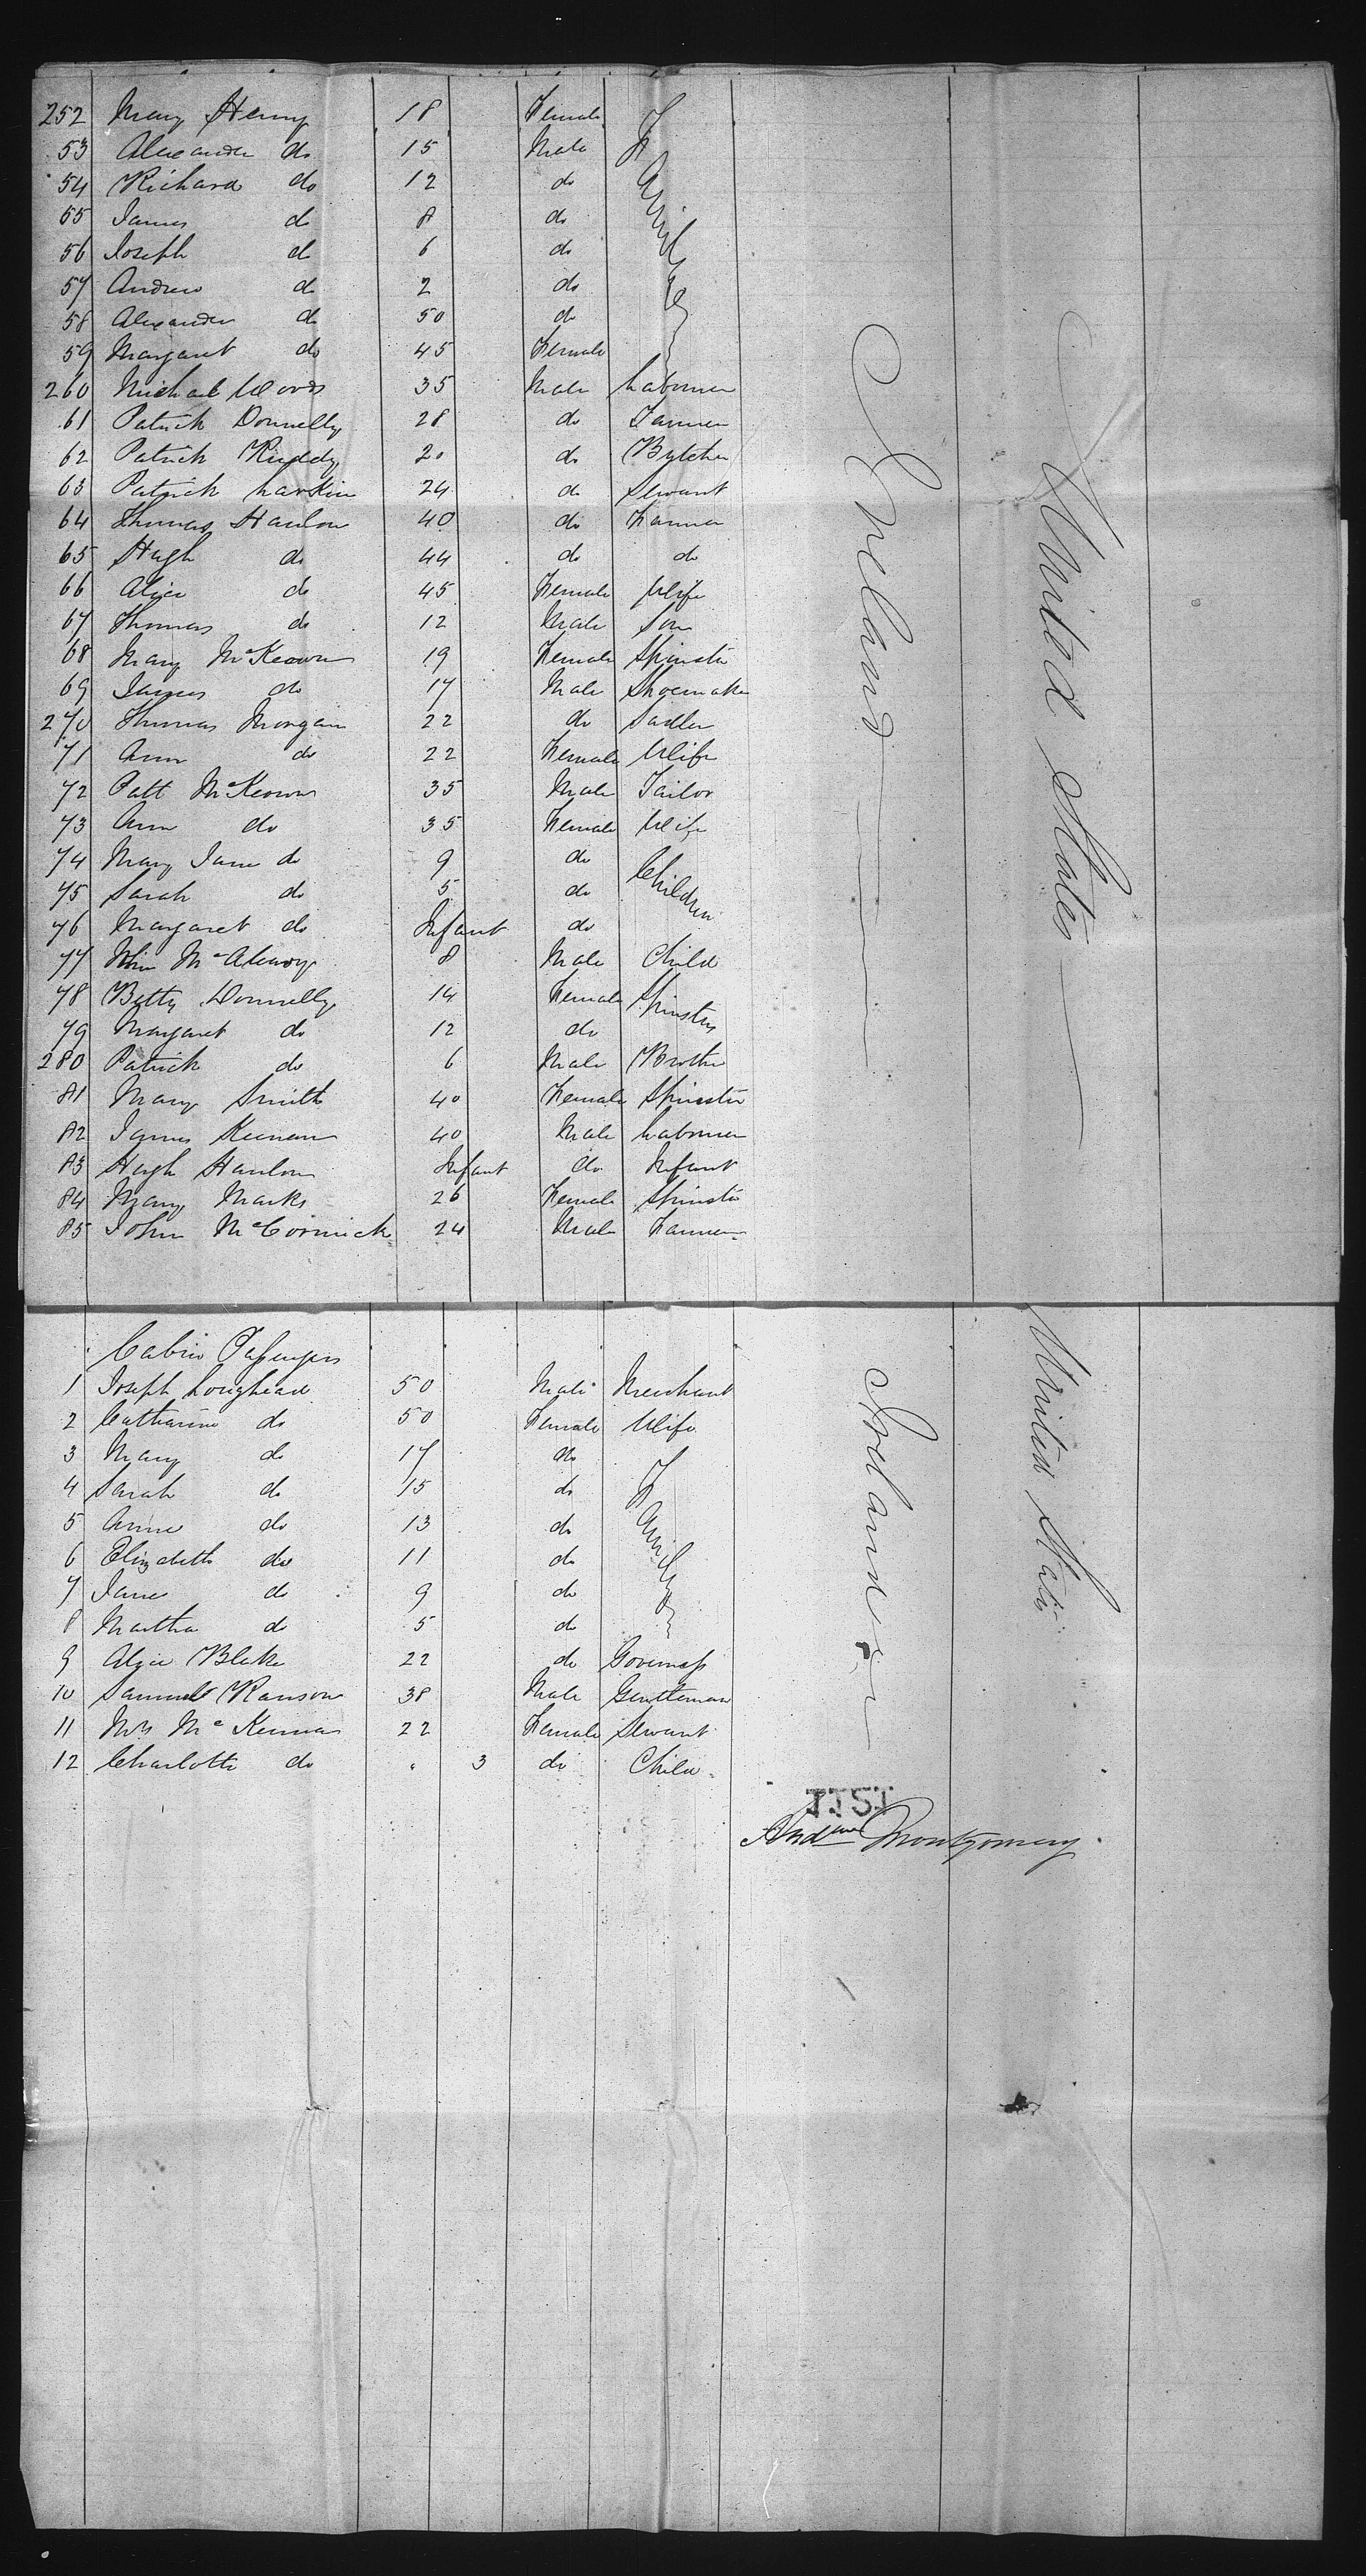 252 Mary Henry 18 Female Family
53 Alexander do 15 Male
54 Richard do 12 do
55 James do 8 do
56 Joseph do 6 do
57 Andrew do 2 do
58 Alexander do 50 do
59 Margaret do 45 Female
260 Michael Woods 35 Male Labourer
61 Patrick Donnelly 28 do Farmer
62 Patrick Ruddy 20 do Butcher
63 Patrick Larkin 24 do Servant
64 Thomas Hanlon 40 do Farmer
65 Hugh do 44 do do
66 Alice do 45 Female Wife
67 Thomas do 12 Male Son
68 Mary McKeown 19 Female Spinster
69 James do 17 Male Shoemaker
270 Thomas Morgan 22 do Sadler
71 Ann do 22 Female Wife
72 Patt McKeown 35 Male Tailor
73 Ann do 35 Female Wife
74 Mary Jane do 9 do Children
75 Sarah do 5 do
76 Margaret do Infant do
77 John 8 Male Child
78 Betty Donnelly 14 Female Spinsters
79 Margaret do 12 do
280 Patrick do 6 Male Brother
81 Mary Smith 40 Female Spinster
82 James Keenan 40 Male Labourer
83 Hugh Hanlon Infant do Infant
84 Mary Marks 26 Female Spinster
85 John McCormick 24 Male Farmer
Ireland
United States
Cabin Passengers
1 Joseph Loughead 50 Male Merchant
2 Catharine do 50 Female Wife
3 Mary do 17 do Family
4 Sarah do 15 do
5 Anne do 13 do
6 Elizabeth do 11 do
7 Jane do 9 do
8 Martha do 5 do
9 Alice Blake 22 do Governess
10 Samuel Ranson 38 Male Gentleman
11 Mrs McKeenan 22 Female Servant
12 Charlotte do " 3 do Child
Ireland
United States
Andrew Montgomery